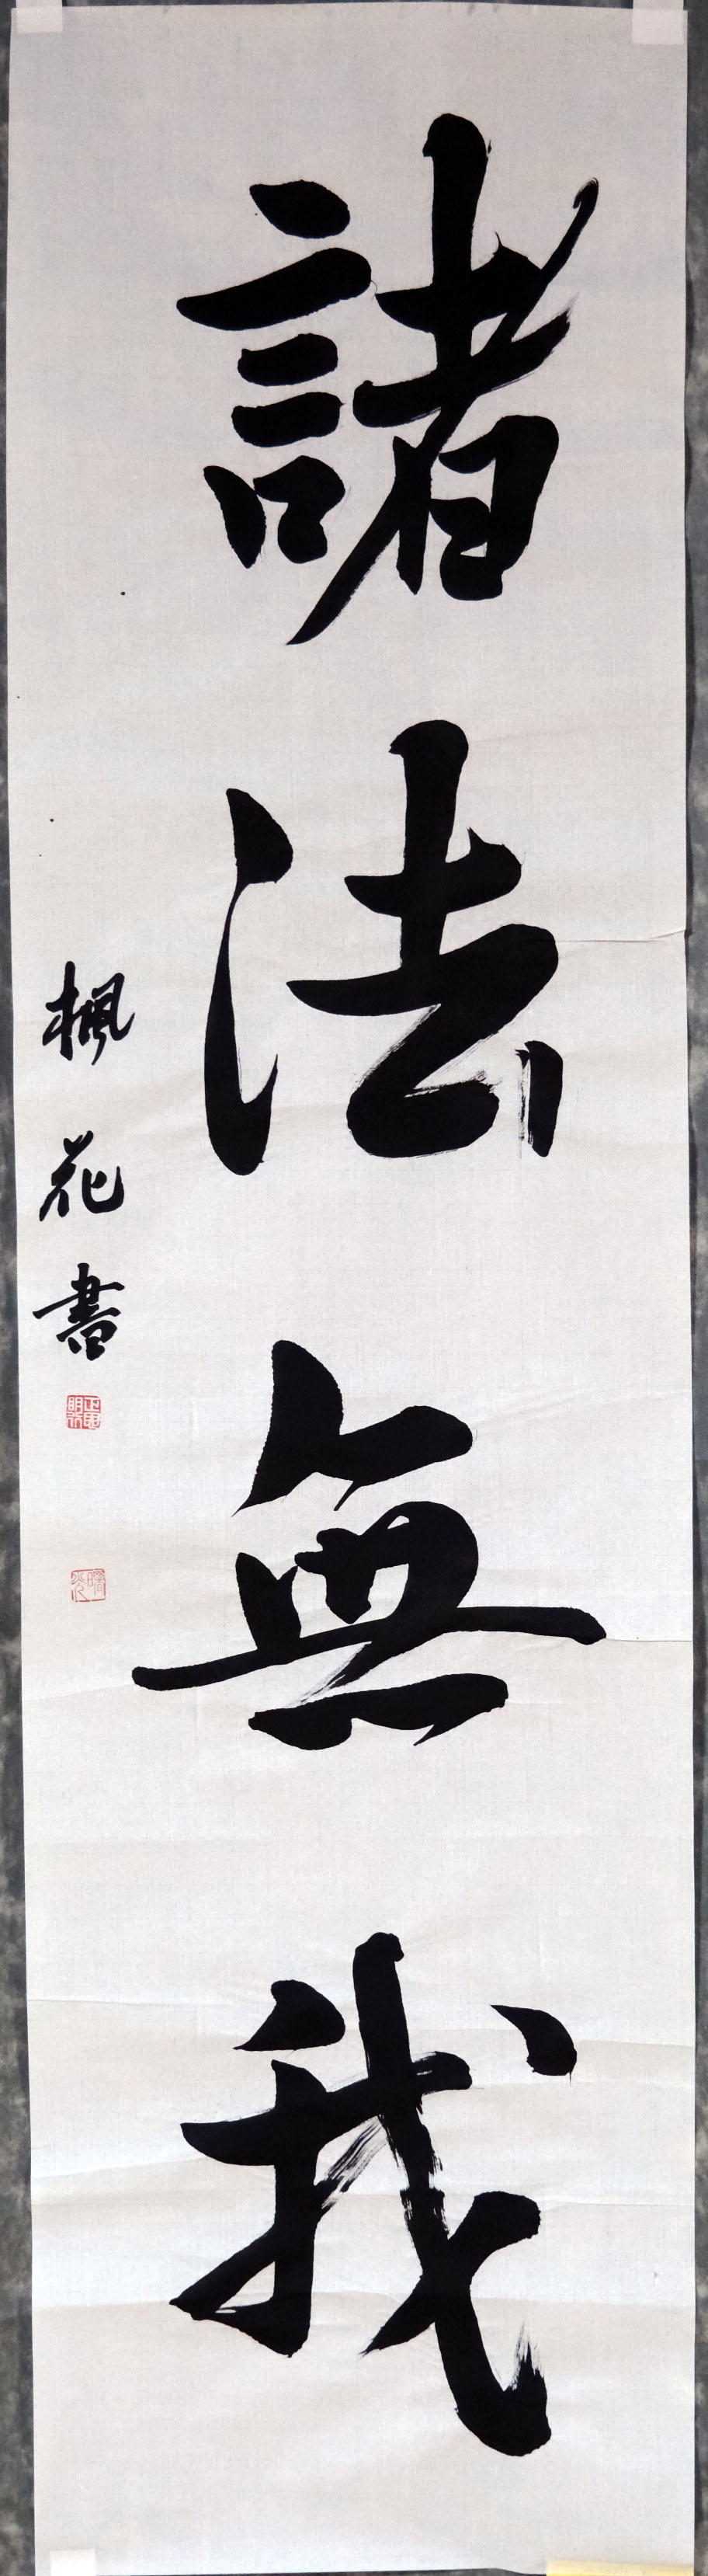 諸法無我
楓花書